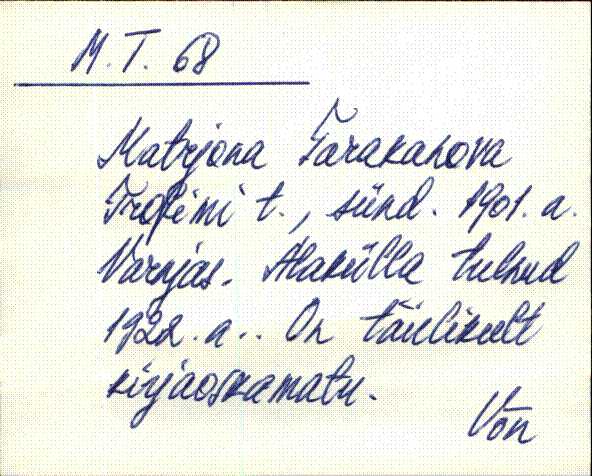 M. T. 68
Matrjona Tarakanova
Trofimi t., sünd. 1901. a.
Varnjas. Alakülla tulnud
1922. a.. On täielikult
kirjaoskamatu.
Vön